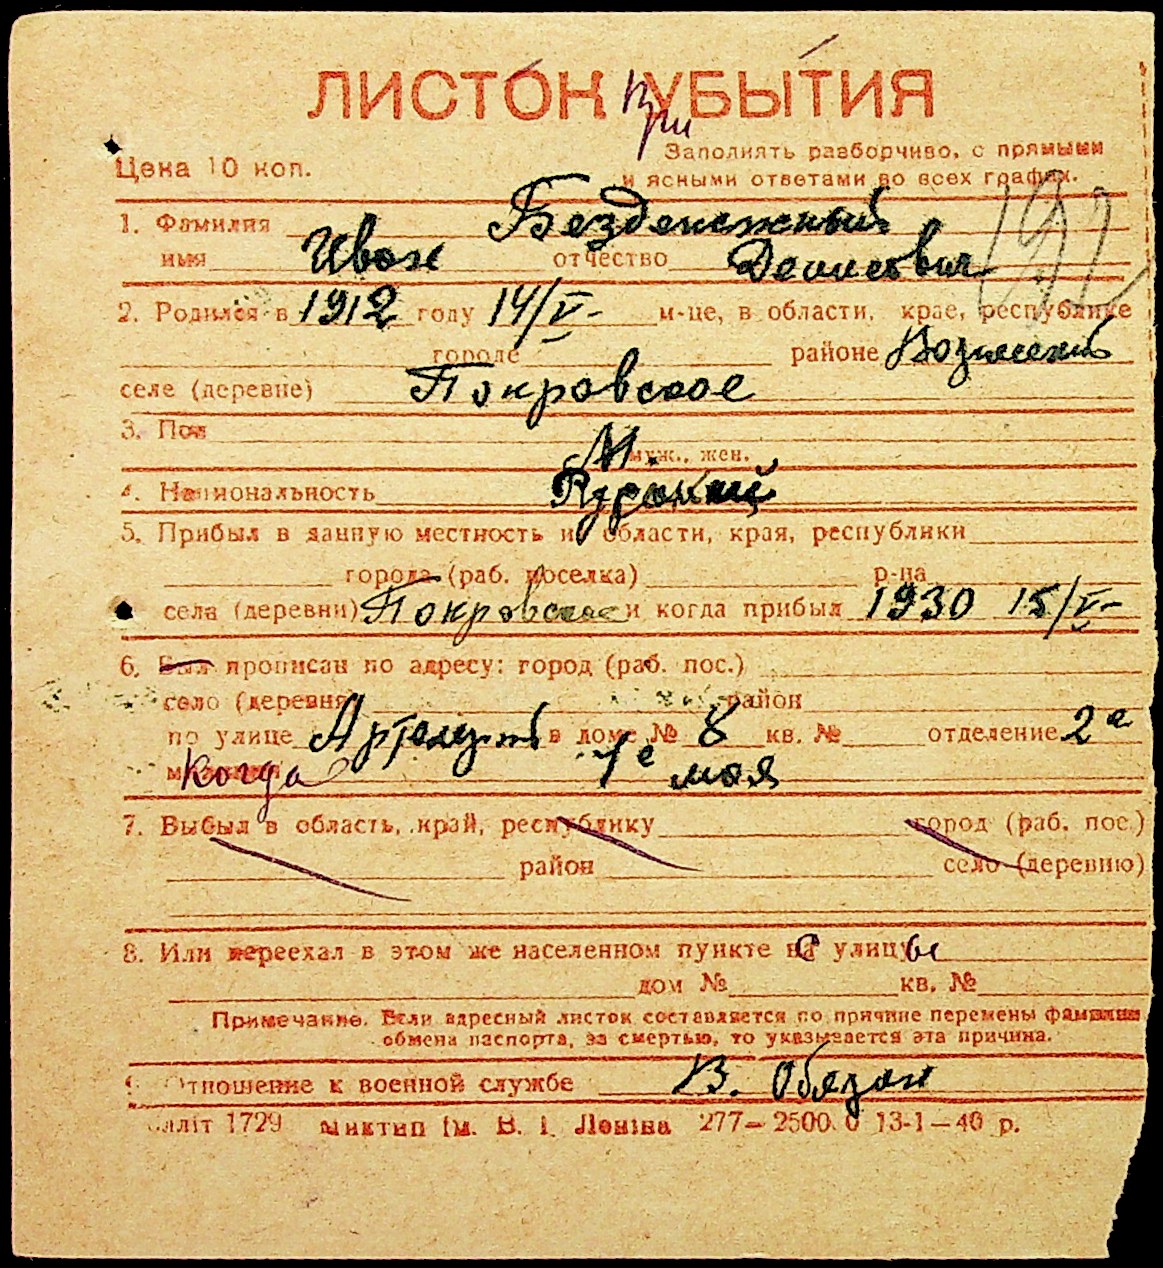 ЛИСТОК УБЫТИЯ
При
Цена 10 коп.
Заполнять разборчиво, с прямыми
и ясными ответами во всех графах.
192
1. Фамилия Безденежный
имя Иван отчество Денисович
2. Родился в 1912 году 14/V- м-це, в области, крае, республике
городе районе Вознесенский
селе (деревне) Покровское
3. Пол М.
муж., жен.
4. Национальность Русский
5. Прибыл в данную местность из области, края, республики
города (раб. поселка) р-на
села (деревни) Покровское и когда прибыл 1930 15/V-
6. Был прописан по адресу: город (раб. пос.)
село (деревня) район
по улице в доме № 8 кв. № отделение 2е
когда 1е мая
7. Выбыл в область, край, республику город (раб. пос.)
район село (деревню)
8. Или переехал в этом же населенном пункте с улицы
дом № кв. №
Примечание. Если адресный листок составляется по причине перемены фамилии
обмена паспорта, за смертью, то указывается эта причина.
9. Отношение к военной службе В. Обязан
лліт 1729 Миктип ім. В. І. Леніна 277-2500 0 13-1-40 р.